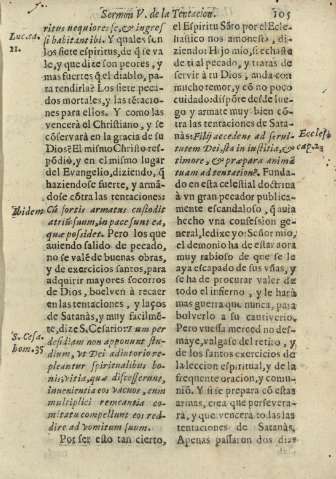 Sermon V. de la Tentacion. 105
Luc. ca. 11.
ritus nequiores se, & ingres
si habitant ibi. Y quales son
los siete espiritus, de que va
le, y que dize son peores, y
mas fuertes que el diablo, pa
ra rendirla? Los siete peca-
dos mortales, y las tētaciones
para ellos. Y como las
vencerà el Christiano, y se
cōservarà en la gracia de su
Dios? El mismo Christo res-
pōdiò, y en el mismo lugar
del Evangelio, diziendo, q̃
haziendose fuerte, y armā-
dose cōtra las tentaciones:
Ibidem
Cũ fortis armatus custodit
atriũ suum, in pace sunt ea,
quæ posidet. Pero los que
auiendo salido de pecado,
no se valē de buenas obras,
y de exercicios santos, para
adquirir mayores socorros
de Dios, buelven à recaer
en las tentaciones, y laços
de Satanàs, y muy facilmē-
te, dize S. Cesario:
S. Cesa. hom. 35
um per
desidiam non apponunt stu-
dium, ut Dei adiutorio re-
pleantur spiritualibus bo-
nis, vitia, quæ discesserunt,
inuenientia eos vacuos, cum
multiplici remeantia co-
mitatu compellunt eos red-
dire ad vomitum suum.
Por ser esto tan cierto,
el Espiritu Sāto por el Ecle-
siastico nos amonesta, di-
ziendo: Hijo mio, si echaste
de ti al pecado, y tratas de
servir à tu Dios, anda con
mucho temor, y cō no poco
cuidado: dispōte desde lue-
go y armate muy bien cō-
tra las tentaciones de Sata-
nàs:
Ecclesi. cap. 2.
Fili accedens ad servi-
tutem Dei, sta in iustitia, &
timore, & præpara animā
tuam ad tentationē. Funda-
do en esta celestial doctrina
à vn gran pecador publica-
mente escandaloso, q̃ auia
hecho vna confession ge-
neral, le dixe yo: Señor mio,
el demonio ha de estar aora
muy rabioso de que se le
aya escapado de sus vñas, y
se ha de procurar valer de
todo el infierno, y le harà
mas guerra que nunca, para
bolverlo a su cautiverio.
Pero vuessa merced no des-
maye, valgase del retiro, y
de los santos exercicios de
la leccion espiritual, y de la
frequente oracion, y comu-
niō. Y si se prepara cō estas
armas, crea que perseverarà,
y que vencerà todas las
tentaciones de Satanàs.
Apenas passaron dos dias